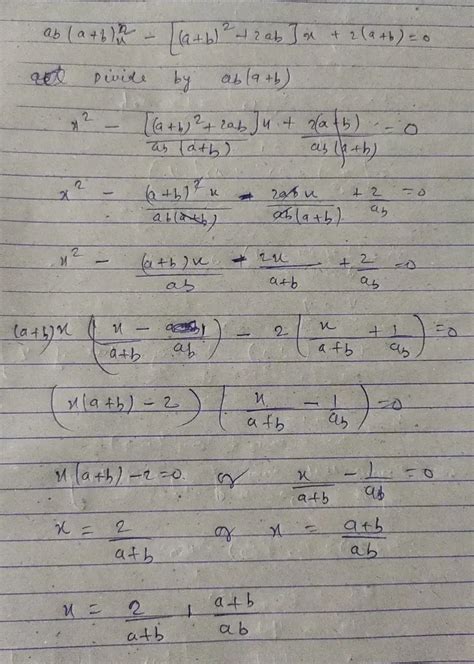 ab(a+b)x² - [(a+b)² + 2ab]x + 2(a+b)=0
Divide by ab(a+b)
x² - [(a+b)²+2ab]x/ab(a+b) + 2(a+b)/ab(a+b) = 0
x² - (a+b)²x/ab(a+b) - 2abx/ab(a+b) + 2/ab = 0
x² - (a+b)x/ab - 2x/a+b + 2/ab = 0
(a+b)x (x/a+b - 1/ab) - 2(x/a+b + 1/ab) = 0
(x(a+b) - 2) (x/a+b - 1/ab) = 0
x(a+b)-2=0 or x/a+b - 1/ab = 0
x = 2/a+b or x = a+b/ab
x = 2/a+b , a+b/ab